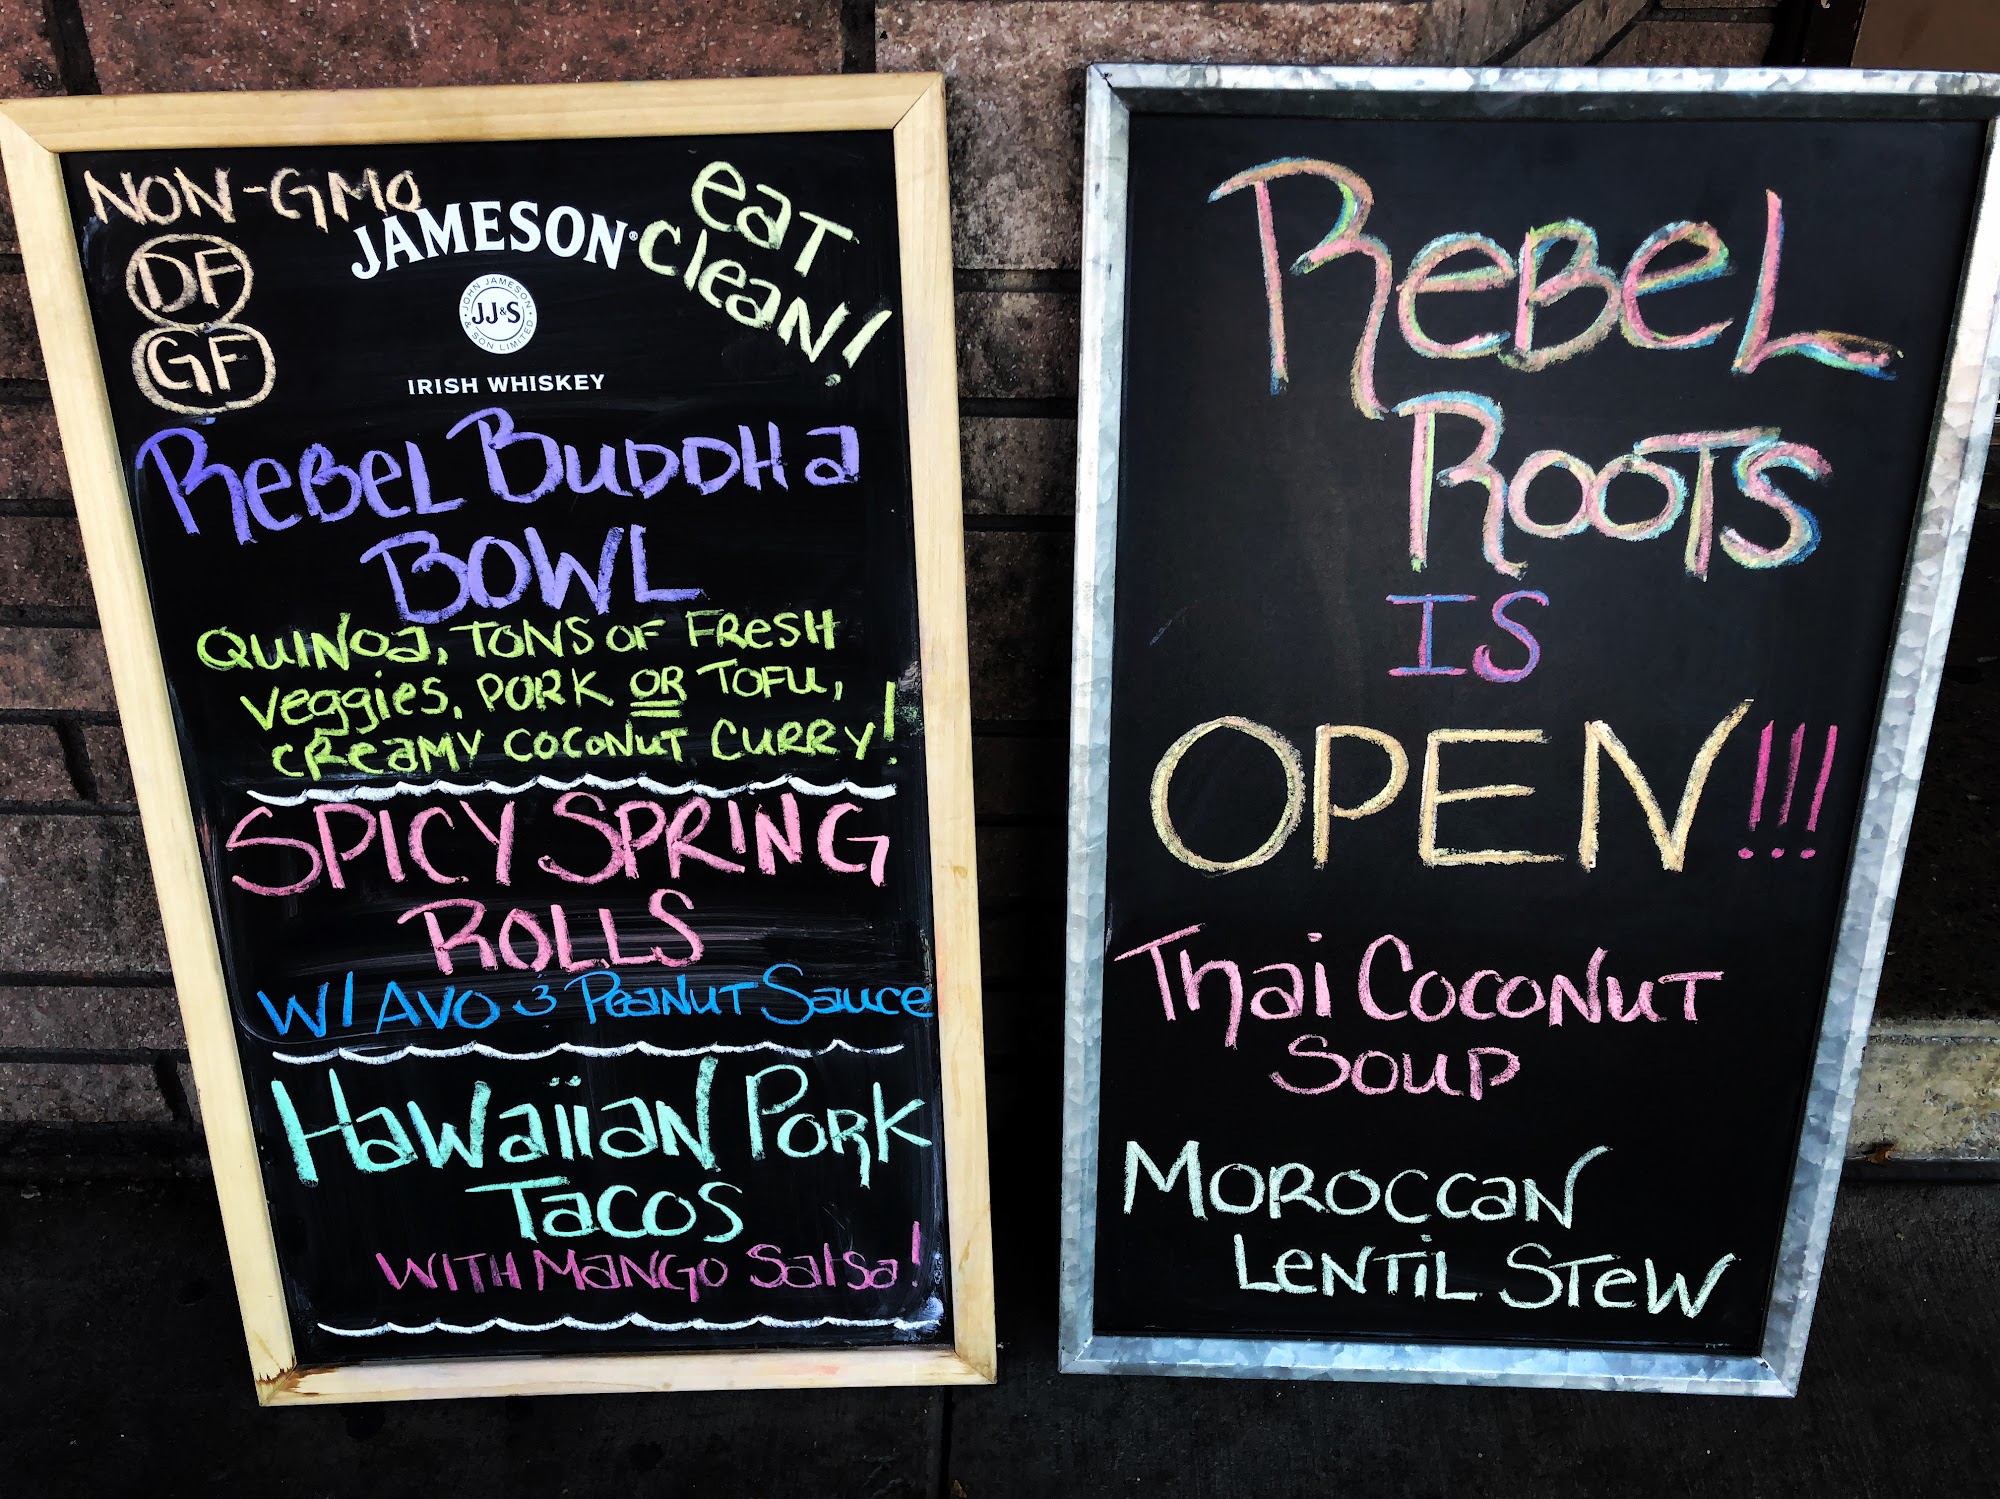 NON-GMO
DF
GF
JAMESON®
JOHN JAMESON
& SON LIMITED
JJ&S
IRISH WHISKEY
eat
clean!
Rebel Buddha
BOWL
QUINOa, TONS OF FResH
Veggies, PORK OR TOFU,
CReaMY COCONUT CURRY!
SPICY SPRING
ROLLS
W/ AVO & PeaNUT Sauce
Hawaiian Pork
Tacos
WITH MaNGO Salsa!
Rebel
Roots
IS
OPEN!!!
Thai Coconut
Soup
Moroccan
Lentil Stew